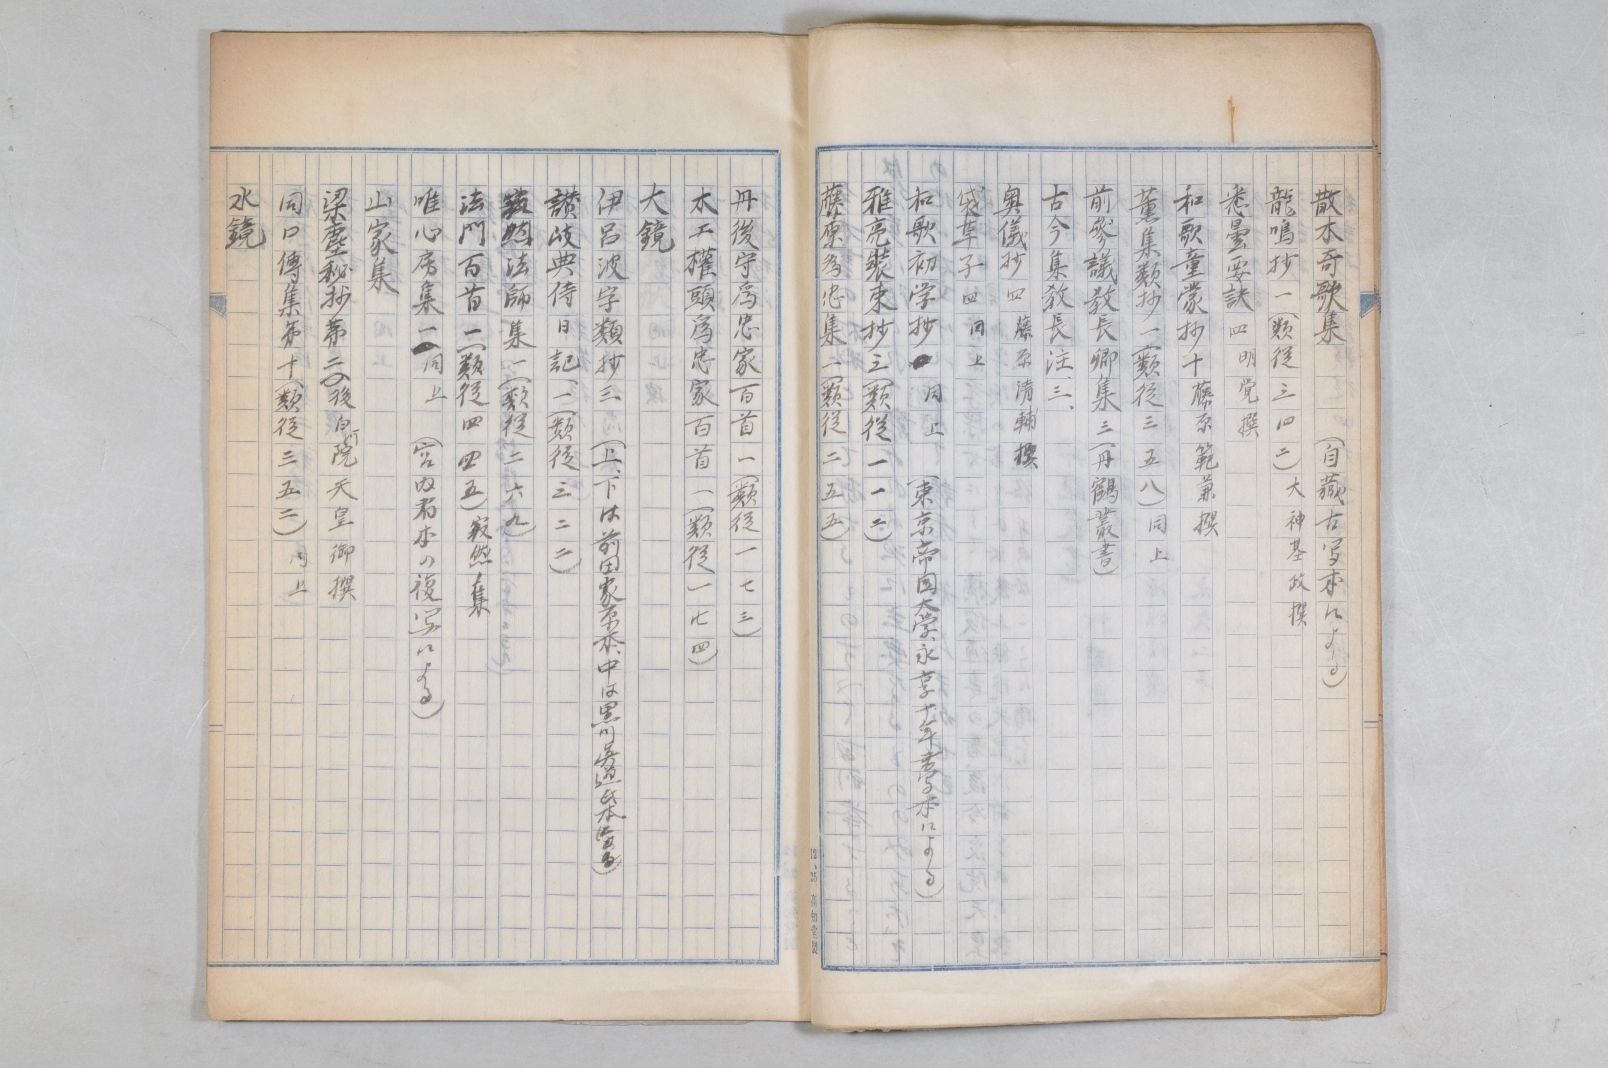 散木奇歌集　　　（自蔵古写本による）
龍鳴抄一（類従三四二）大神基政撰
悉曇要訣四　明覚撰
和歌童蒙抄十　藤原範兼撰
薫集類抄一（類従三五八）同上
前参議教長卿集三（丹鶴叢書）
古今集教長注三、
奥儀抄四　藤原清輔撰
袋草子四　同上
和歌初学抄　同上　（東京帝国大学永享十年書写本による）
雅亮装束抄三（類従一一二）
藤原為忠集一（類従二五五）
丹後守為忠家百首一（類従一七三）
木工権頭為忠家百首一（類従一七四）
大鏡
伊呂波字類抄三　（上、下は前田家原本、中は黒川
讃岐典侍日記、一（類従三二二）
寂然法師集一（類従二六九）
法門百首一（類従四四五）寂然集
唯心房集一　同上　（宮内省本の複写による）
山家集
梁塵秘抄第二（後白河院天皇御撰
同口傳集第十（類従三五二）同上
水鏡